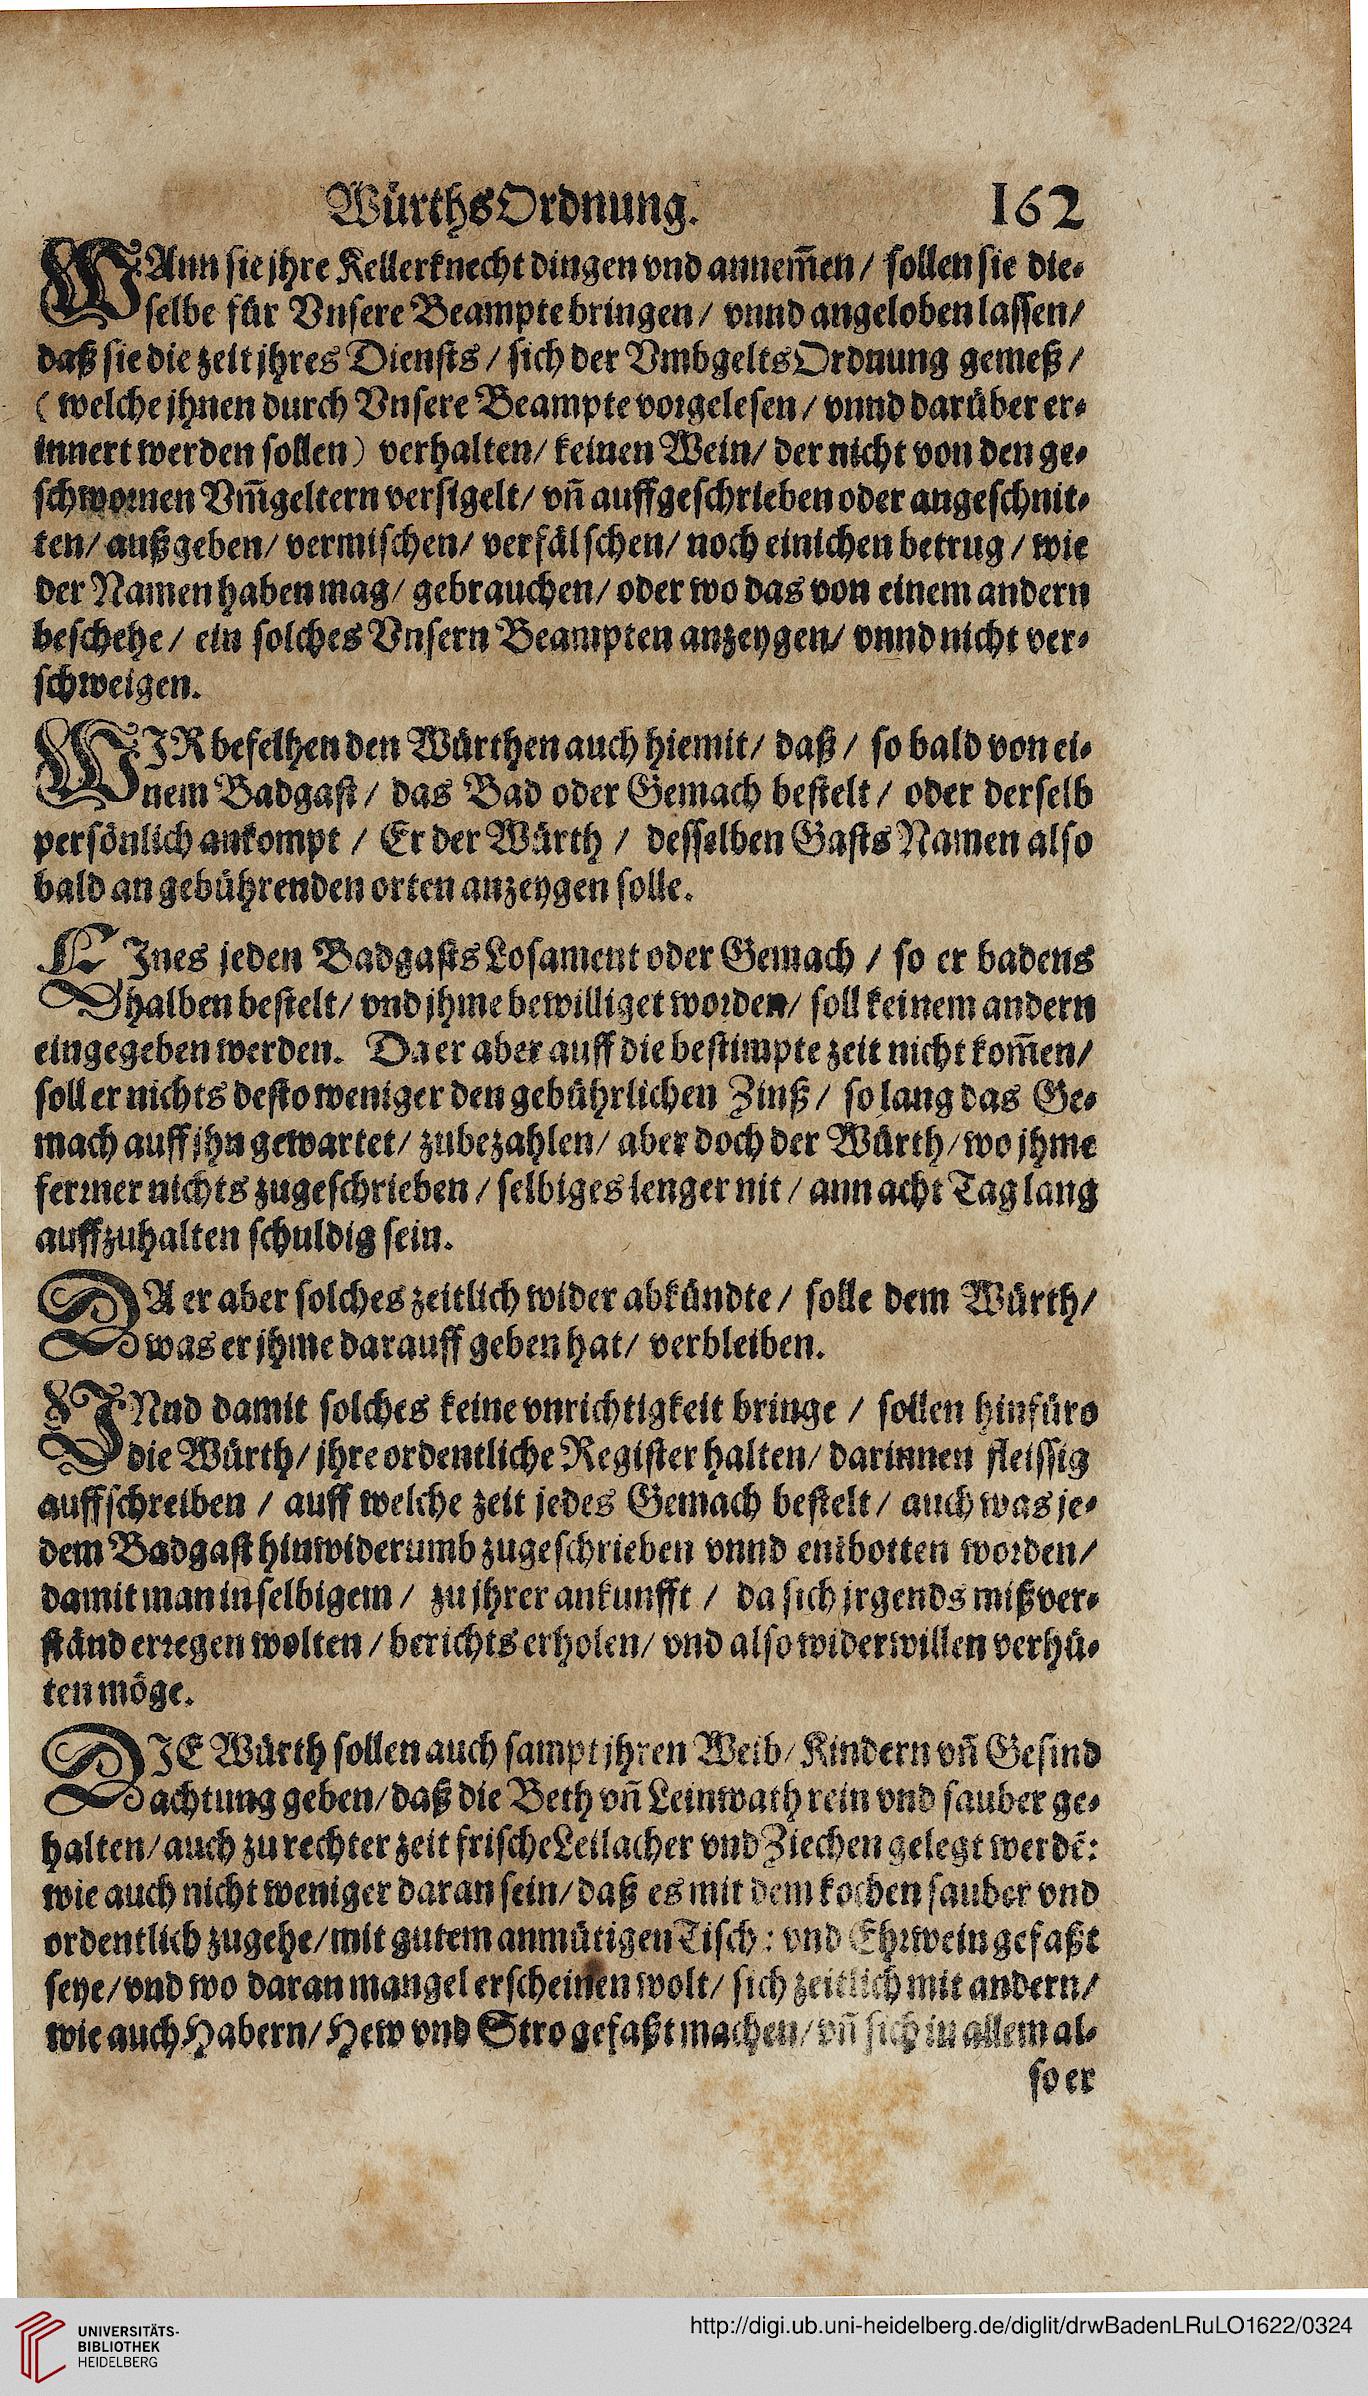 WürthsOrdnung. 162
WAnn sie jhre Kellerknecht dingen vnd annem̃en / sollen sie die-
selbe für Vnsere Beampte bringen / vnnd angeloben lassen /
daß sie die zeit jhres Diensts / sich der VmbgeltsOrdnung gemeß /
( welche jhnen durch Vnsere Beampte vorgelesen / vnnd darüber er-
innert werden sollen ) verhalten / keinen Wein / der nicht von den ge-
schwornen Vm̃geltern versigelt / vñ auffgeschrieben oder angeschnit-
ten / außgeben / vermischen / verfälschen / noch einichen betrug / wie
der Namen haben mag / gebrauchen / oder wo das von einem andern
beschehe / ein solches Vnsern Beampten anzeygen / vnnd nicht ver-
schweigen.
WIR befelhen den Würthen auch hiemit / daß / so bald von ei-
nem Badgast / das Bad oder Gemach bestelt / oder derselb
persönlich ankompt / Er der Würth / desselben Gasts Namen also
bald an gebührenden orten anzeygen solle.
EInes jeden Badgasts Losament oder Gemach / so er badens
halben bestelt / vnd jhme bewilliget worden / soll keinem andern
eingegeben werden. Da er aber auff die bestimpte zeit nicht kom̃en /
soll er nichts desto weniger den gebührlichen Zinß / so lang das Ge-
mach auff jhn gewartet / zubezahlen / aber doch der Würth / wo jhme
ferrner nichts zugeschrieben / selbiges lenger nit / ann acht Tag lang
auffzuhalten schuldig sein.
DA er aber solches zeitlich wider abkündte / solle dem Würth /
was er jhme darauff geben hat / verbleiben.
VNnd damit solches keine vnrichtigkeit bringe / sollen hinfüro
die Würth / jhre ordentliche Register halten / darinnen fleissig
auffschreiben / auff welche zeit jedes Gemach bestelt / auch was je-
dem Badgast hinwiderumb zugeschrieben vnnd entbotten worden /
damit man in selbigem / zu jhrer ankunfft / da sich jrgends mißver-
ständ erregen wolten / berichts erholen / vnd also widerwillen verhü-
ten möge.
DIE Würth sollen auch sampt jhren Weib / Kindern vñ Gesind
achtung geben / daß die Beth vñ Leinwath rein vnd sauber ge-
halten / auch zu rechter zeit frische Leilacher vnd Ziechen gelegt werdē:
wie auch nicht weniger daran sein / daß es mit dem kochen sauber vnd
ordentlich zugehe / mit gutem anmütigen Tisch: vnd Ehrwein gefaßt
seye / vnd wo daran mangel erscheinen wolt / sich zeitlich mit andern /
wie auch Habern / Hew vnd Stro gefaßt machen / vñ sich in allem al-
so er
UNIVERSITÄTS-
BIBLIOTHEK
HEIDELBERG
http://digi.ub.uni-heidelberg.de/diglit/drwBadenLRuLO1622/0324